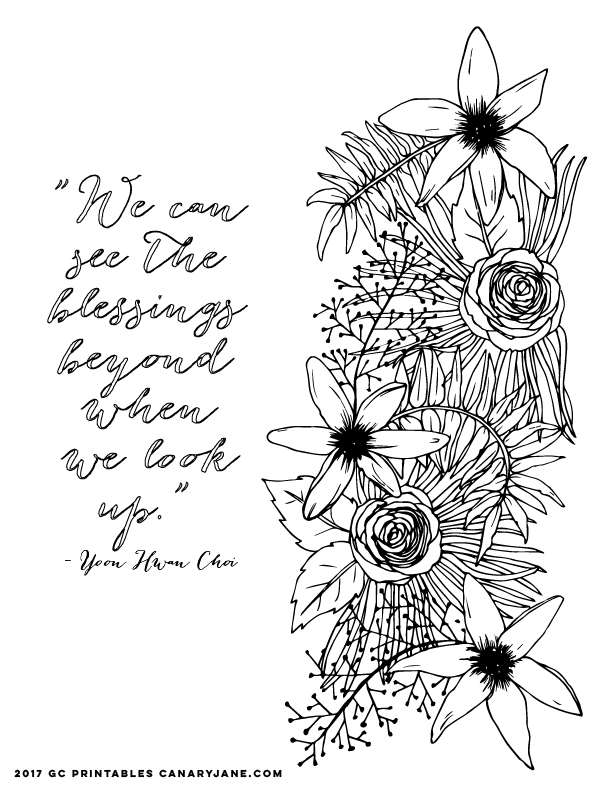 "We can
see the
blessings
beyond
when
we look
up."
- Yoon Hwan Choi
2017 GC PRINTABLES CANARYJANE.COM